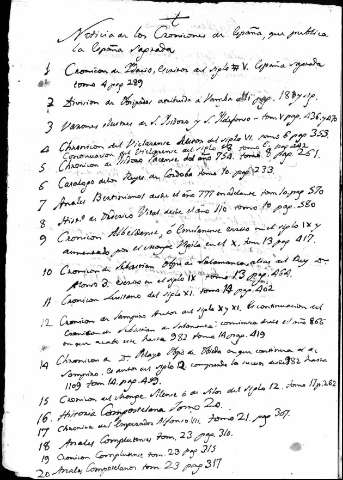 Noticia de los Cronicones de España, que publica
la España Sagrada
1 Cronicon de Idacio, Escritor del siglo V. España Sagrada
tomo 4 pag 289
2 Division de Obispados atribuida a Vamba
3 Varones ilustres de S. Isidoro y S. Ildefonso - tom V pag. 436, y 470
4 Chronicon del Viclarense del siglo VI. tomo 6 pag 353.
Continuacion del Viclarense del siglo tomo 6. pag 422
5 Chronicon de Isidoro Pacense del año 754. tomo 8 pag. 251.
6 Catalogo de los Reyes de Cordoba tomo 10. pag 233.
7 Anales Bertinianos desde el año 777 en adelante tomo 10 pag 570
8 Hist.ª de Vital desde el año 110 tomo 10 pag. 580
9 Cronicon Albeldense, ó Emilianense escrito en el siglo IX y
aumentado por el Monge Vigila en el X. tom 13 pag. 417.
10 Cronicon de Sebastian Obpo de Salamanca, alias del Rey Dn
Alonso 3. escrito en el siglo IX tomo 13 pag. 464.
11 Cronicon Iriense del siglo XI. tomo 14 pag 462
12 Cronicon de Sampiro Autor del siglo X y XI. Es continuacion del
Cronicon de Sebastian de Salamanca: comienza desde el año 866
en que acaba este hasta 982 tomo 14 pag. 419
14 Chronicon de Dn Pelayo Obpo de Oviedo en que continua al de
Sampiro. Es autor del siglo 12 comprende lo sucedido desde 982 hasta
1109 tom 14. pag. 459.
15 Cronicon del Monge Silense ó de Silos del siglo 12. tomo 17 p. 262
16. Historia Compostelana Tomo 20.
17 Chronica del Emperador Alfonso VII. tomo 21. pag 307.
18 Anales Complutenses tom. 23. pag 310.
19 Cronicon Complutense tom. 23 pag 315
20 Anales Compostelanos tom 23 pag 317